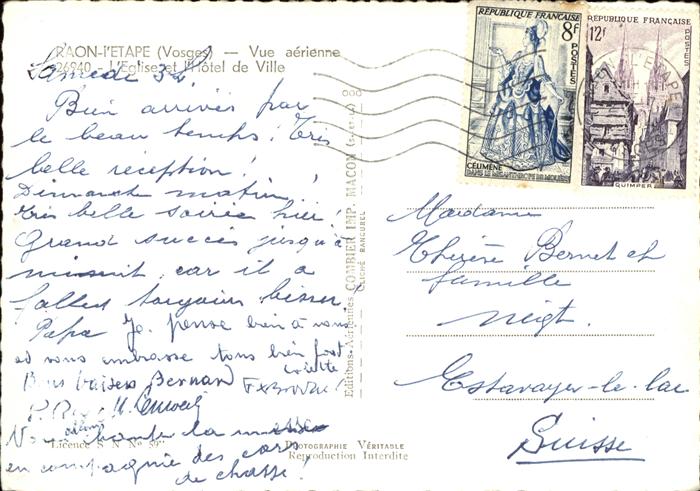 RAON-l'ETAPE (Vosges) — Vue aérienne
26940 - L'Eglise et l'Hôtel de Ville
Samedi
Bien arrivés par
le beau temps! Très
belle réception!
Dimanche matin!
très belle soirée hier!
Grand succès jusqu'à
minuit, car il a
fallut toujours bisser
Papa Je pense bien à vous
et vous embrasse tous bien fort
Bons baisers Bernard
Nous allons chanter la messe
en compagnie des cors
de chasse!
Licence S N N° 59
PHOTOGRAPHIE VÉRITABLE
Reproduction Interdite
Editions Aériennes COMBIER IMP. MACON (S.-ET-L.)
CLICHÉ RANCUREL
RÉPUBLIQUE FRANÇAISE
8F
POSTES
CÉLIMÈNE
DANS LE MISANTHROPE DE MOLIÈRE
RÉPUBLIQUE FRANÇAISE
12F
POSTES
QUIMPER
Madame
Thérèse Bernet et
famille
négt.
Estavayer-le-lac
Suisse